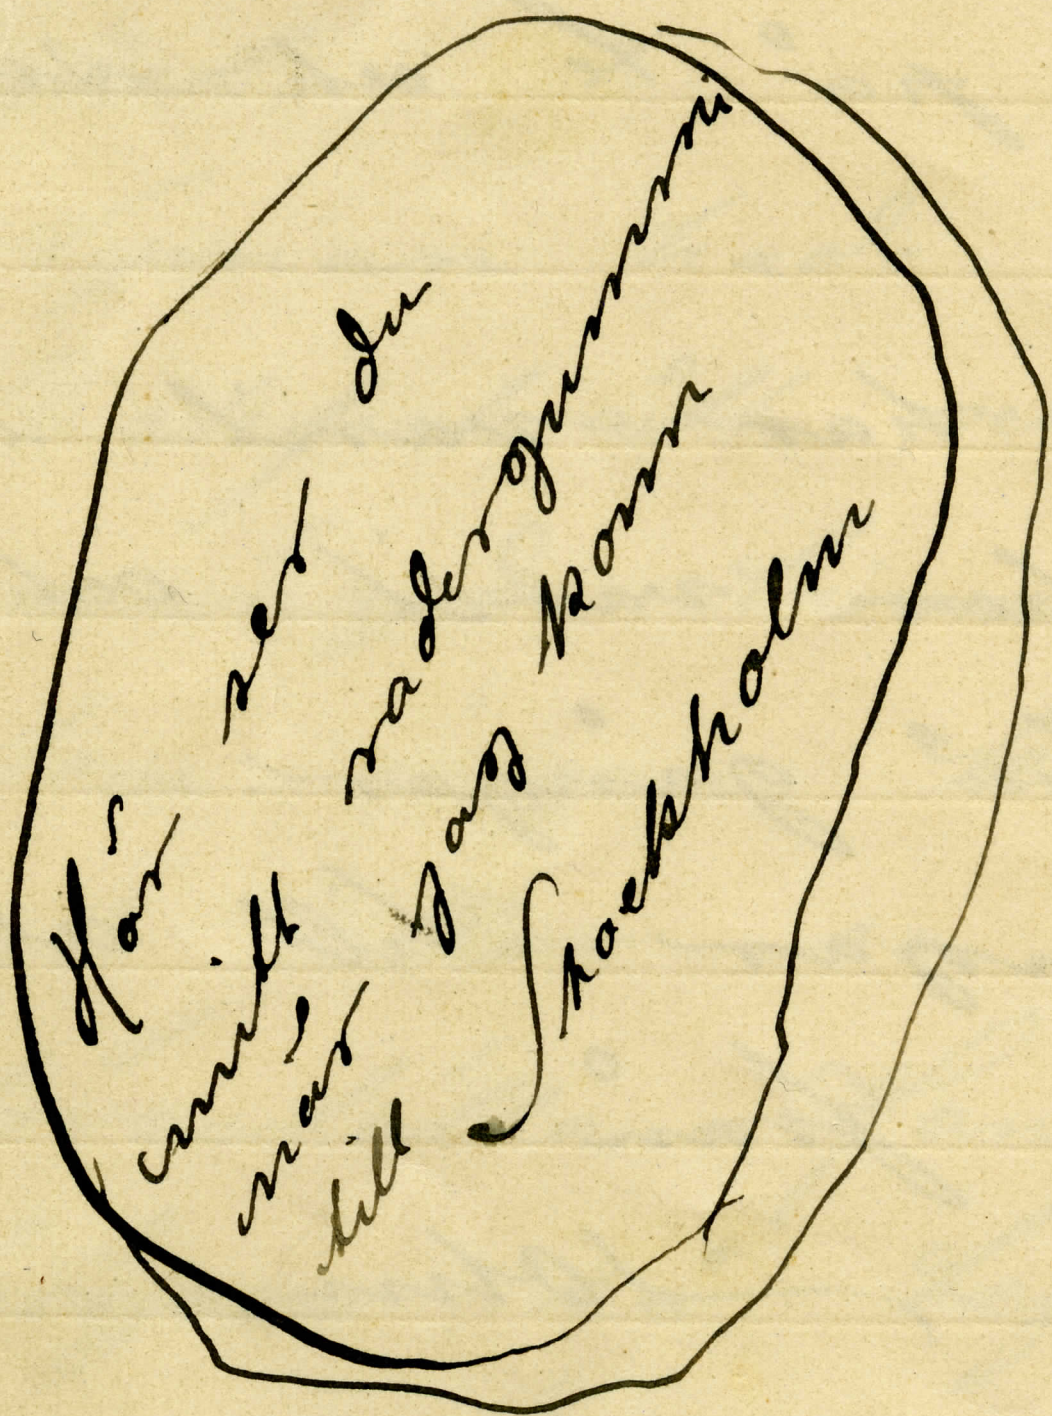 Här ser du
mitt radergummi
när jag kom
till Stockholm